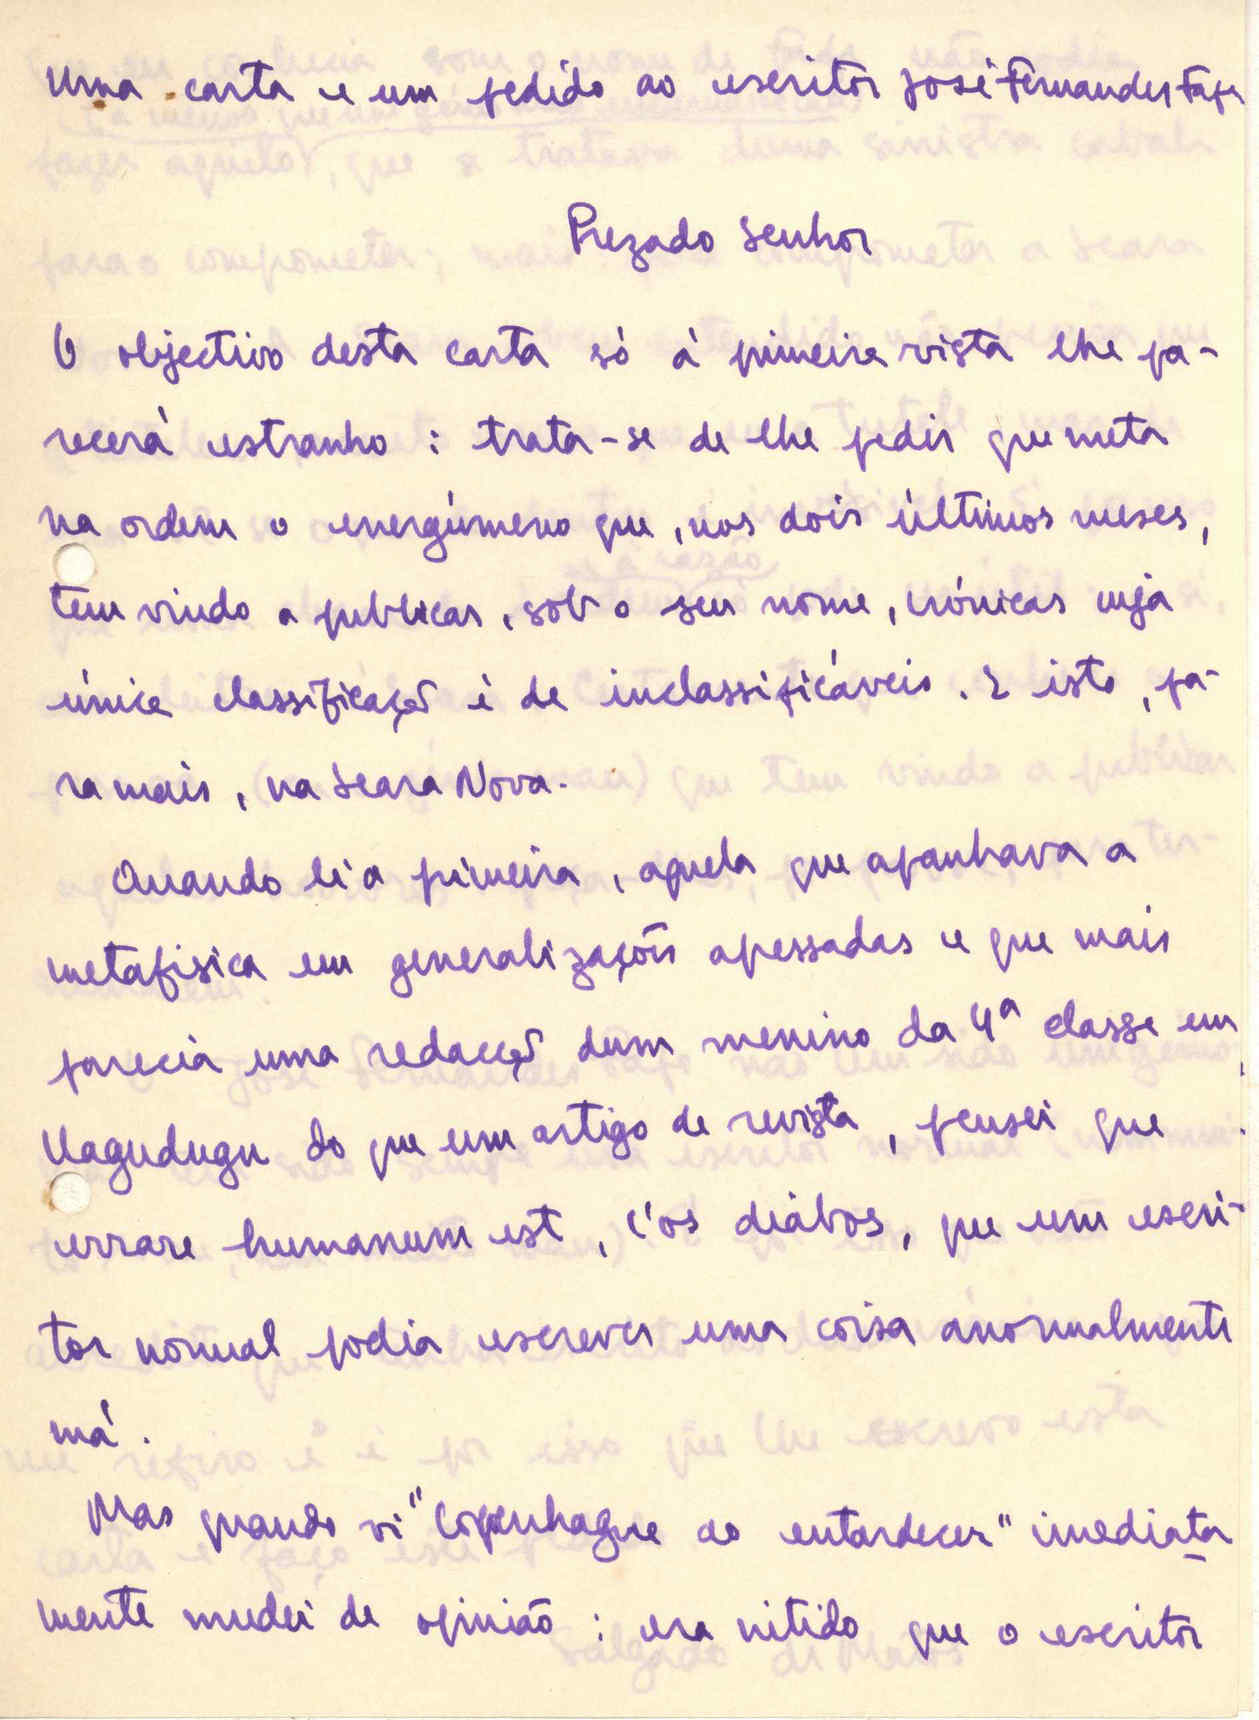 Uma carta e um pedido ao escritor José Fernandes Fafe
Prezado Senhor
O objectivo desta carta só à primeira vista lhe pa-
recerá estranho : trata-se de lhe pedir que meta
na ordem o energúmeno que, nos dois últimos meses,
tem vindo a publicar, sob o seu nome, crónicas cuja
única classificação é de inclassificáveis. E isto, pa-
ra mais, na Seara Nova.
Quando li a primeira, aquela que apanhava a
metafisica em generalizações apessadas e que mais
parecia uma redacção dum menino da 4ª classe em
Uagudugu do que um artigo de revista, pensei que
errare humanum est, c'os diabos, que um escri-
tor normal podia escrever uma coisa anormalmente
má.
Mas quando vi "Copenhague ao entardecer" imediata
mente mudei de opinião : era nitido que o escritor